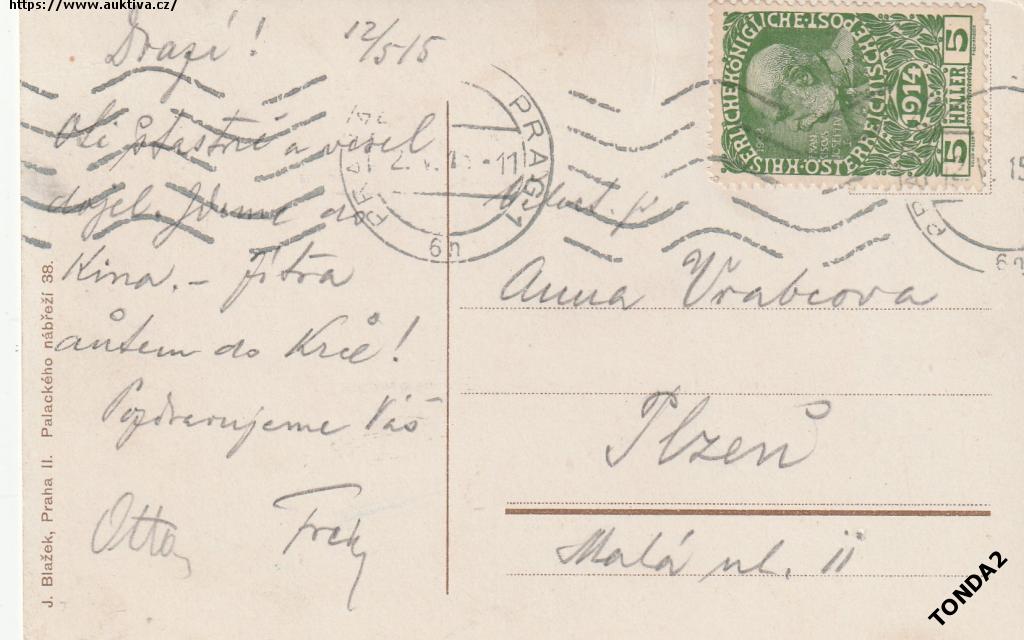 https://www.auktiva.cz/
Drazí! 12/5 15
Oti šťastně a vesel
dojel. Jdeme do
Kina. – Jitra
autem do Krče!
Pozdravujeme Vás
Otta
J. Blažek, Praha II. Palackého nábřeží 38.
PRAG 1
6n
KAISERLICHE KÖNIGLICHE ÖSTERREICHISCHE POST
1914
5 HELLER 5
Anna Vrabcova
Plzeň
Malá ul. 11
TONDA2